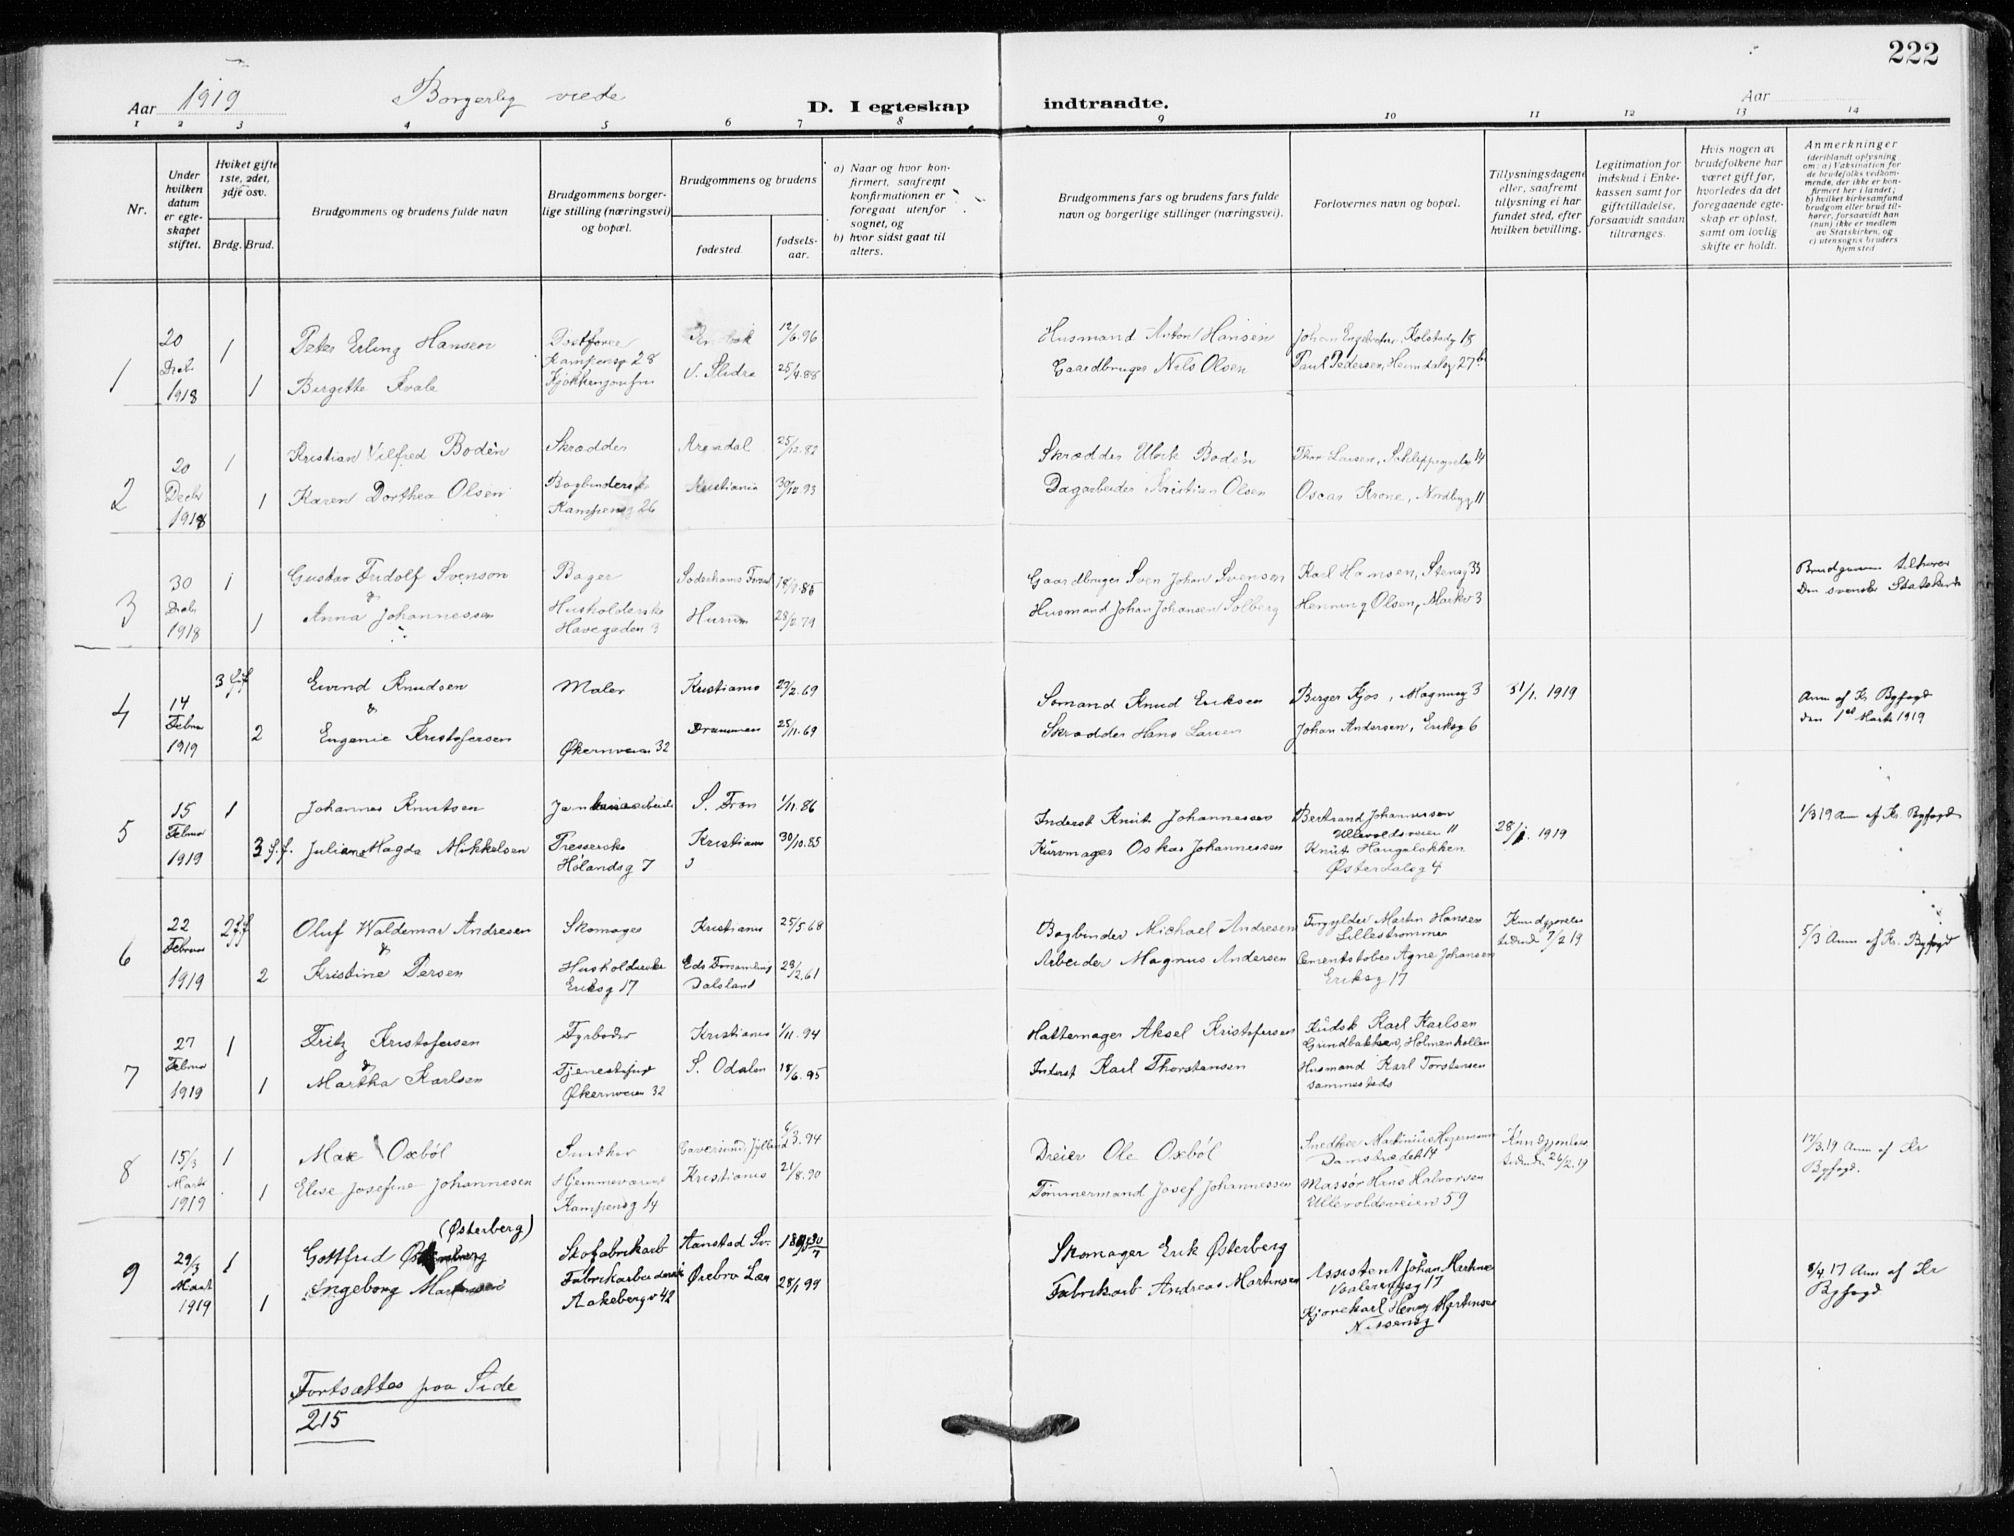 222
Aar 1919 Borgerlig viede D. I egteskap indtraadte. Aar
1 2 3 4 5 6 7 8 9 10 11 12 13 14
Nr.
Under hvilken datum er egteskapet stiftet.
Hvilket gifte 1ste, 2det, 3dje osv.
Brdg. Brud.
Brudgommens og brudens fulde navn
Brudgommens borgerlige stilling (næringsvei) og bopæl.
Brudgommens og brudens
fødested. fødselsaar.
a) Naar og hvor konfirmert, saafremt konfirmationen er foregaat utenfor sognet, og
b) hvor sidst gaat til alters.
Brudgommens fars og brudens fars fulde navn og borgerlige stillinger (næringsvei).
Forlovernes navn og bopæl.
Tillysningsdagene eller, saafremt tillysning ei har fundet sted, efter hvilken bevilling.
Legitimation for indskud i Enkekassen samt for giftetilladelse, forsaavidt saadan tiltrænges.
Hvis nogen av brudefolkene har været gift før, hvorledes da det foregaaende egteskap er opløst, samt om lovlig skifte er holdt.
Anmerkninger
(deriblandt oplysning om: a) Vaksination for de brudefolks vedkommende, der ikke er konfirmert her i landet; b) hvilket kirkesamfund brudgom eller brud tilhører, forsaavidt han (hun) ikke er medlem av Statskirken, og c) utensogns bruders hjemsted
1 20 Decbr 1918 1 Peter Erling Hansen Kampensg 28 12/6.96 Husmand Anton Hansen Kolstadg 15
1 Birgitte Kvale Kjøkkenjomfru V. Slidre 25/4.88 Gaardbruger Nils Olsen Paul Pedersen, Heimdalsg 27b
2 20 Decbr 1918 1 Kristian Vilfred Bodèn Skrædder Arendal 25/12.82 Skrædder Bodèn Thor Larsen, 14
1 Karen Dorthea Olsen Bogbinderske Kampensg 26 Kristiania 30/12.93 Dagarbeider Kristian Olsen Oscar Krone, Nordbyg 11
3 30 Decbr 1918 1 Gustav Fridolf Svenson Bager Søderhams 18/9.85 Gaardbruger Sven Johan Svenson Karl Hansen, Stensg 33 Brudgommen tilhører Den svenske Statskirke
&
1 Anna Johannessen Husholderske Havegaden 3 Hurum 28/2.79 Husmand Johan Johansen Solberg Henning Olsen, Markv 3
4 14 Februar 1919 3 f.f. Eivind Knudsen Maler Kristiania 29/2.69 Sømand Knud Eriksen Berger Kjos, Magnusg 3 31/1. 1919 Anm af Kr Byfogd den 1st Marts 1919
&
2 Eugenie Kristofersen Økernveien 32 Drammen 25/11.69 Skrædder Hans Larsen Johan Andersen, Eriksg 6
5 15 Februar 1919 1 Johannes Knutsen S. Fron 1/11.86 Inderst Knut Johannessen Bertrand Johannessen Ullevoldsveien 11 28/1. 1919 1/3 19 Anm af Kr. Byfogd
3 f.f. Juliane Magda Mikkelsen Presserske Hølandsg 7 Kristiania 30/10.85 Kurvmager Oskar Johannessen Knut Haugeløkken Østerdalsg 4
6 22 Februar 1919 2 f.f. Oluf Waldemar Andresen Skomager Kristiania 25/5.68 Bogbinder Michael Andresen Forgylder Martin Hansen Lillestrømmen Kundgjørelses 7/2 19 5/3 Anm af Kr. Byfogd
&
2 Kristine Persen Husholderske Eriksg 17 Eds Forsamling Dalsland 28/2.61 Arbeider Magnus Andersen Cementstøber Agne Johansen Eriksg 17
7 27 Februar 1919 1 Fritz Kristofersen Fyrbøder Kristiania 1/11.94 Hattemager Aksel Kristofersen Kudsk Karl Karlsen Grindbakken, Holmenkollen
&
1 Martha Karlsen Tjenestepige Økernveien 32 S. Odalen 18/6.95 Inderst Karl Thorstensen Husmand Karl Torstensen sammesteds
8 15/3 Marts 1919 1 Max Oxbøl Snedker Jylland 6/3.94 Dreier Ole Oxbøl Snedker Martinius Hejermann Damstrædet 14 Kundgjørelses 26/2.19 17/3.19 Anm af Kr Byfogd.
1 Elise Josefine Johannesen Hjemmeværende Kampensg 14 Kristiania 21/8.90 Tømmermand Josef Johannessen Massør Hans Halvorsen Ullevoldsveien 59
(Østerberg)
9 29/3 Marts 1919 1 Gottfred Skofabrikarb Skomager Erik Østerberg Assistent Johan 17 8/4 17 Anm af Kr Byfogd
1 Ingeborg Martinsen Fabrikarbeiderske Aakebergv 42 Ørebro Læn 28/1 99 Fabrikarb Andreas Martinsen Kjørekarl Henry Martinsen Nissensg
Fortsættes paa Side
215